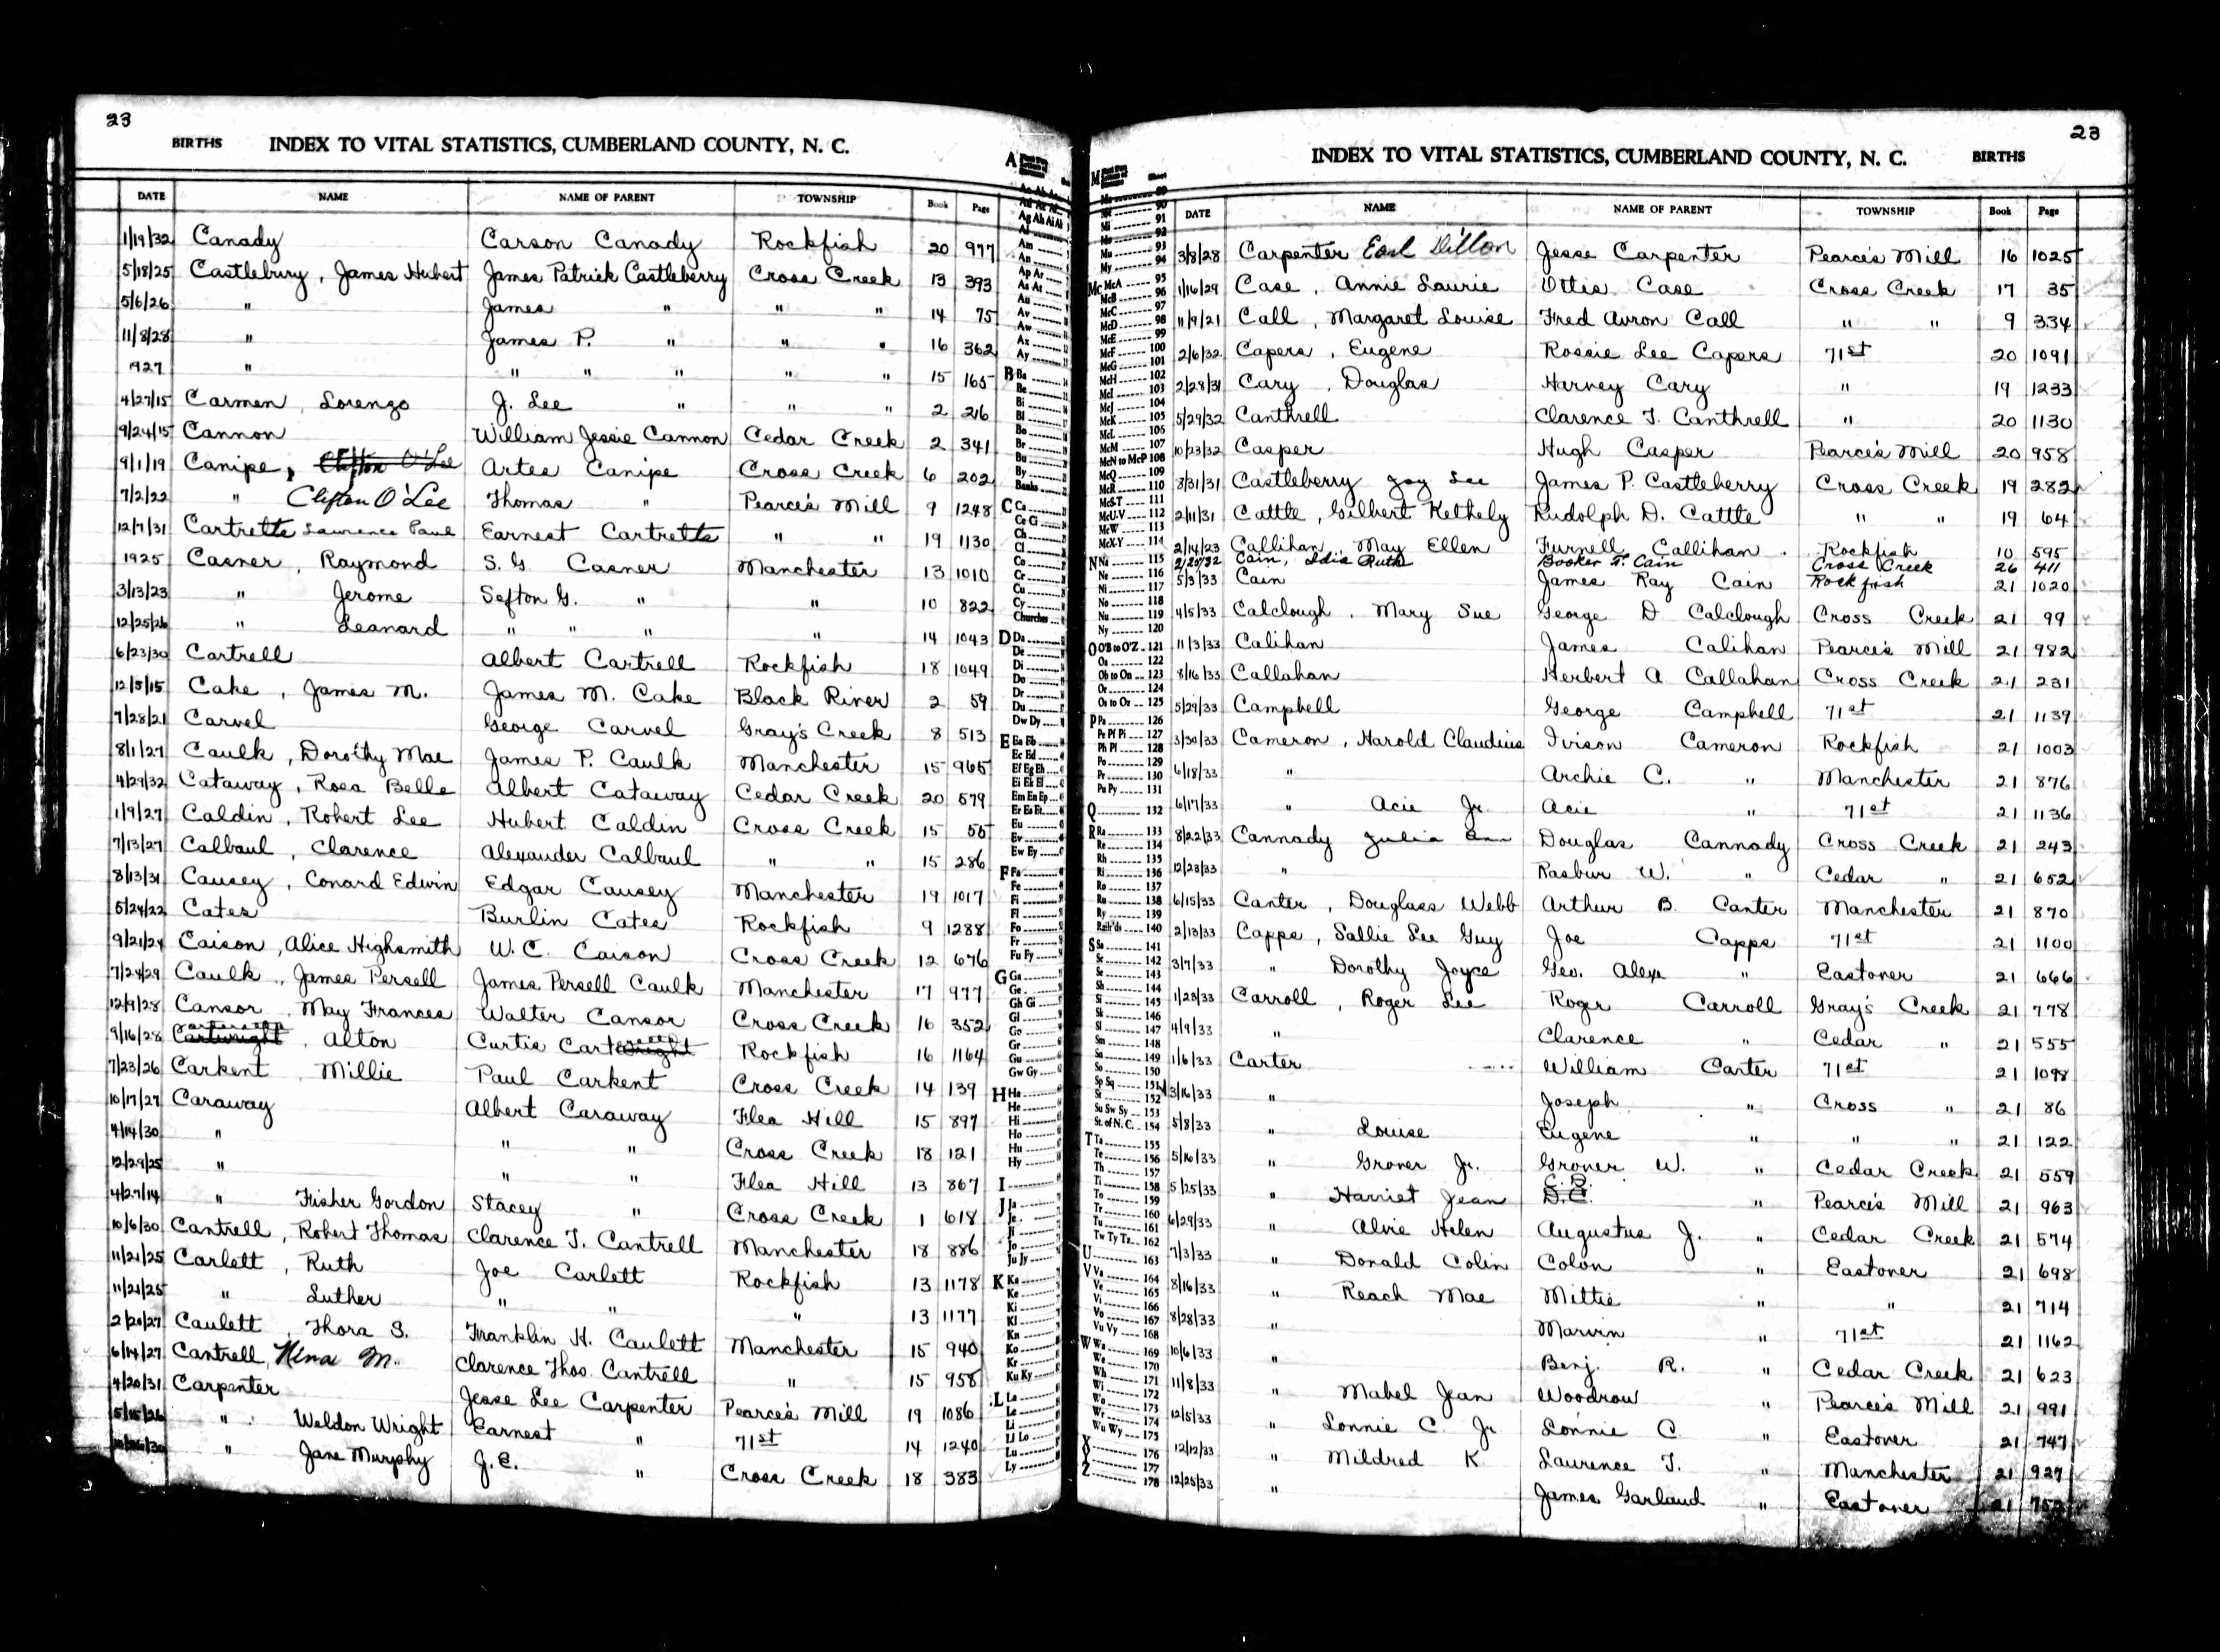 23
BIRTHS INDEX TO VITAL STATISTICS, CUMBERLAND COUNTY, N. C.
DATE NAME NAME OF PARENT TOWNSHIP Book Page
1/19/32 Canady Carson Canady Rockfish 20 977
5/18/25 Castlebury, James Hubert James Patrick Castleberry Cross Creek 13 393
5/6/26 " James " " " 14 75
11/8/28 " James P. " " " 16 362
1927 " " " " " " 15 165
4/27/15 Carmen, Lorenzo J. Lee " " " 2 216
9/24/15 Cannon William Jessie Cannon Cedar Creek 2 341
9/1/19 Canipe, Clifton O'Lee Artes Canipe Cross Creek 6 202
7/2/22 " Clifton O'Lee Thomas " Pearce's Mill 9 1248
12/7/31 Cartrette Lawrence Paul Earnest Cartrette " " 19 1130
1925 Casner, Raymond S. G. Casner Manchester 13 1010
3/13/23 " Jerome Sefton G. " " 10 822
12/25/26 " Leonard " " " " 14 1043
6/23/30 Cartrell Albert Cartrell Rockfish 18 1049
12/5/15 Cake, James M. James M. Cake Black River 2 59
7/28/21 Carvel George Carvel Gray's Creek 8 513
8/1/27 Caulk, Dorothy Mae James P. Caulk Manchester 15 965
4/29/32 Cataway, Rosa Belle Albert Cataway Cedar Creek 20 579
1/9/27 Caldin, Robert Lee Hubert Caldin Cross Creek 15 55
7/13/27 Calbaul, Clarence Alexander Calbaul " " 15 286
8/13/31 Causey, Conard Edwin Edgar Causey Manchester 19 1017
5/24/22 Cates Burlin Cates Rockfish 9 1288
9/21/24 Caison, Alice Highsmith W. C. Caison Cross Creek 12 676
7/24/29 Caulk, James Persell James Persell Caulk Manchester 17 977
12/9/28 Cansor, May Frances Walter Cansor Cross Creek 16 352
9/16/28 Cartwright, Alton Curtis Cartwright Rockfish 16 1164
7/23/26 Carkent, Millie Paul Carkent Cross Creek 14 139
10/17/27 Caraway Albert Caraway Flea Hill 15 897
4/14/30 " " " Cross Creek 18 121
12/29/25 " " " Flea Hill 13 867
4/27/14 " Fisher Gordon Stacey " Cross Creek 1 618
10/6/30 Cantrell, Robert Thomas Clarence T. Cantrell Manchester 18 886
11/21/25 Carlett, Ruth Joe Carlett Rockfish 13 1178
11/21/25 " Luther " " " 13 1177
2/20/27 Caulett, Thora S. Franklin H. Caulett Manchester 15 940
6/14/27 Cantrell, Nina M. Clarence Thos. Cantrell " 15 958
4/20/31 Carpenter Jesse Lee Carpenter Pearce's Mill 19 1086
5/15/26 " Weldon Wright Earnest " 71st 14 1240
" Jane Murphy J. E. " Cross Creek 18 383
A
Am
An
Ap Ar
As At
Au
Av
Aw
Ax
Ay
B Ba
Be
Bi
Bl
Bo
Br
Bu
By
Banks
C Ca
Ce Ci
Ch
Cl
Co
Cr
Cu
Cy
Churches
D Da
De
Di
Do
Dr
Du
Dw Dy
E Ea Eb
Ec Ed
Ef Eg Eh
Ei Ek El
Em En Ep
Er Es Et
Eu
Ev
Ew Ey
F Fa
Fe
Fi
Fl
Fo
Fr
Fu Fy
G Ga
Ge
Gh Gi
Gl
Go
Gr
Gu
Gw Gy
H Ha
He
Hi
Ho
Hu
Hy
I
J Ja
Je
Ji
Jo
Ju Jy
K Ka
Ke
Ki
Kl
Kn
Ko
Kr
Ku Ky
L La
Le
Li
Ll Lo
Lu
Ly
23
INDEX TO VITAL STATISTICS, CUMBERLAND COUNTY, N. C. BIRTHS
M
90
91
92
Mu 93
My 94
Mc McA 95
McB 96
McC 97
McD 98
McE 99
McF 100
McG 101
McH 102
McI 103
McJ 104
McK 105
McL 106
McM 107
McN to McP 108
McQ 109
McR 110
McS-T 111
McU-V 112
McW 113
McX-Y 114
N Na 115
Ne 116
Ni 117
No 118
Nu 119
Ny 120
O O'B to O'Z 121
Oa 122
Ob to On 123
Or 124
Os to Oz 125
P Pa 126
Pe Pf Pi 127
Ph Pl 128
Po 129
Pr 130
Pu Py 131
Q 132
R Ra 133
Re 134
Rh 135
Ri 136
Ro 137
Ru 138
Ry 139
Railr'ds 140
S Sa 141
Sc 142
Se 143
Sh 144
Si 145
Sk 146
Sl 147
Sm 148
Sn 149
So 150
Sp Sq 151
St 152
Su Sw Sy 153
St. of N. C. 154
T Ta 155
Te 156
Th 157
Ti 158
To 159
Tr 160
Tu 161
Tw Ty Tz 162
U 163
V Va 164
Ve 165
Vi 166
Vo 167
Vu Vy 168
W Wa 169
We 170
Wh 171
Wi 172
Wo 173
Wr 174
Wu Wy 175
Y 176
177
Z 178
DATE NAME NAME OF PARENT TOWNSHIP Book Page
3/8/28 Carpenter Earl Dillon Jesse Carpenter Pearce's Mill 16 1025
1/16/29 Case, Annie Laurie Ottis Case Cross Creek 17 35
11/9/21 Call, Margaret Louise Fred Avron Call " " 9 334
2/6/32 Capers, Eugene Rossie Lee Capers 71st 20 1091
2/28/31 Cary, Douglas Harvey Cary " 19 1233
5/29/32 Canthrell Clarence T. Canthrell " 20 1130
10/23/32 Casper Hugh Casper Pearce's Mill 20 958
8/31/31 Castleberry Joy Lee James P. Castleberry Cross Creek 19 282
2/11/31 Cattle, Gilbert Kethely Rudolph D. Cattle " " 19 64
2/14/23 Callihan, May Ellen Furnell Callihan Rockfish 10 595
2/20/32 Cain, Idis Ruth Booker T. Cain Cross Creek 26 411
5/3/33 Cain James Ray Cain Rockfish 21 1020
4/5/33 Calclough, Mary Sue George D Calclough Cross Creek 21 99
11/3/33 Calihan James Calihan Pearce's Mill 21 982
8/16/33 Callahan Herbert A Callahan Cross Creek 21 231
5/29/33 Campbell George Campbell 71st 21 1139
3/30/33 Cameron, Harold Claudius Ivison Cameron Rockfish 21 1003
6/18/33 " Archie C. " Manchester 21 876
6/17/33 " Acie Jr. Acie " 71st 21 1136
8/22/33 Cannady Julia Ann Douglas Cannady Cross Creek 21 243
12/23/33 " Rasbur W. " Cedar " 21 652
6/15/33 Canter, Douglass Webb Arthur B. Canter Manchester 21 870
2/13/33 Capps, Sallie Lee Guy Joe Capps 71st 21 1100
3/7/33 " Dorothy Joyce Geo. Alex " Eastover 21 666
1/23/33 Carroll, Roger Lee Roger Carroll Gray's Creek 21 778
4/9/33 " Clarence " Cedar " 21 555
1/6/33 Carter William Carter 71st 21 1098
3/16/33 " Joseph " Cross " 21 86
5/8/33 " Louise Eugene " " " 21 122
5/16/33 " Grover Jr. Grover W. " Cedar Creek 21 559
5/25/33 " Harriet Jean C. D. " Pearce's Mill 21 963
6/29/33 " Alvie Helen Augustus J. " Cedar Creek 21 574
7/3/33 " Donald Colin Colon " Eastover 21 698
8/16/33 " Reach Mae Mittie " " 21 714
8/28/33 " Marvin " 71st 21 1162
10/6/33 " Benj. R. " Cedar Creek 21 623
11/8/33 " Mabel Jean Woodrow " Pearce's Mill 21 991
12/5/33 " Lonnie C. Jr Lonnie C. " Eastover 21 747
12/12/33 " Mildred K. Laurence T. " Manchester 21 927
12/25/33 " James Garland " Eastover 21